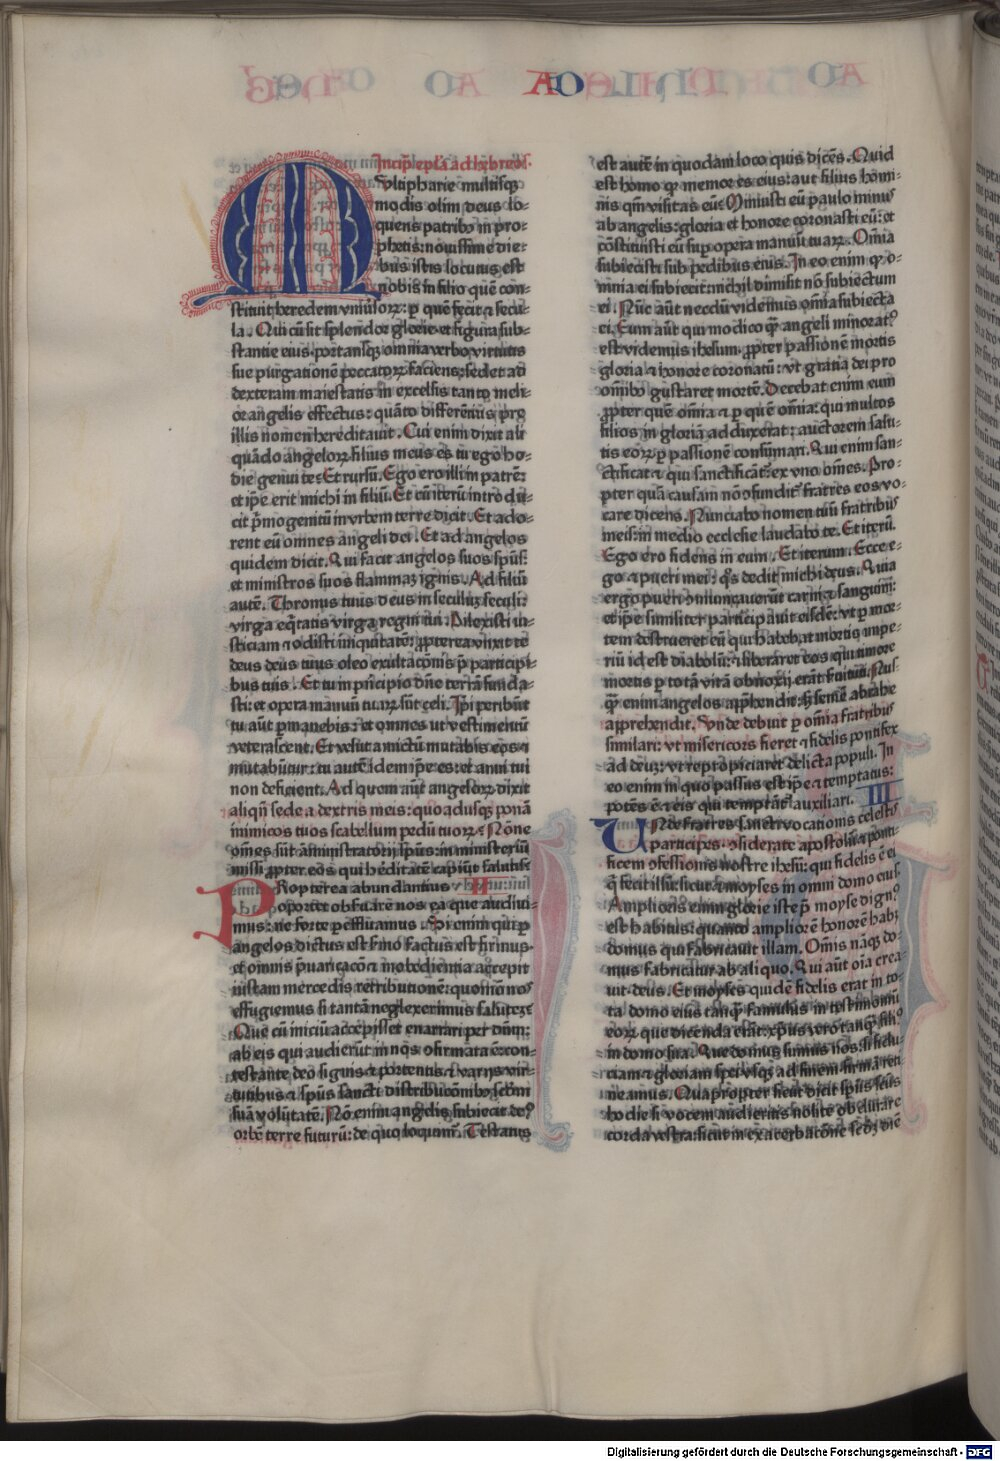 AD
Incip̄ ep̄la ad hebreos.
Multipharie multisqꝫ
modis olim deus lo-
quens patribꝰ in pro-
phetis: nouissime die-
bus istis locutus est
nobis in filio quē con-
stituit heredem vniūsorꝝ: ꝑ quē fecit ⁊ secu-
la. Qui cū sit splendor glorie et figura sub-
stantie eius. portansqꝫ omnia verbo virtutis
sue purgationē peccatorꝝ faciens: sedet ad
dexteram maiestatis in excelsis tanto meli-
or angelis effectus: quāto differētius pre
illis nomen hereditauit. Cui enim dixit ali
quādo angelorꝝ filius meus es tu ego ho-
die genui te: Et rursū. Ego ero illi in patrē:
et ip̄e erit michi in filiū. Et cū iterū introdu-
cit p̄mogenitū in orbem terre dicit. Et ado-
rent eū omnes angeli dei. Et ad angelos
quidem dicit. Qui facit angelos suos sp̄us:
et ministros suos flammaꝫ ignis. Ad filiū
autē. Thronus tuus deus in seculū seculi:
virga eq̄tatis virga regni tui. Dilexisti iu-
sticiam ⁊ odisti iniquitatē: ꝓpterea vnxit te
deus deus tuus oleo exultacōnis p̄ participi-
bus tuis. Et tu in prīcipio dn̄e terrā funda-
sti: et opera manuū tuarꝝ sūt celi. Ip̄i peribūt
tu aūt ꝑmanebis: et omnes vt vestimentū
veterascent. Et velut amictū mutabis eos ⁊
mutabūtur: tu autē idem ip̄e es: et anni tui
non deficient. Ad quem aūt angelorꝝ dixit
aliqn̄ sede a dextris meis: quoadusqꝫ ponā
inimicos tuos scabellum pedū tuorꝝ: Nōne
om̄es sūt āministratorij sp̄us: in ministeriū
missi ꝓpter eos qui hēditatē capiūt salutis:
PRopterea abundantius II
oportet obseruare nos ea que audiui-
mus: ne forte peffluamus. Si enim qui ꝑ
angelos dictus est sermo factus est firmus.
et omnis p̄uaricacō ⁊ inobedientia accepit
iustam mercedis retributionē: quomō nos
effugiemus si tantā neglexerimus salutē:
Que cū iniciū accepisset enarrari per dn̄m:
ab eis qui audierūt in nos ꝯfirmata ē: con-
testante deo signis ⁊ portentis. ⁊ varijs vir-
tutibus ⁊ sp̄us sancti distribucōnibꝰ scd̄m
suā volūtatē. Nō enim angelis subiecit deꝰ
orbē terre futurū: de quo loquimꝰ. Testatus
est autē in quodam loco quis dicēs. Quid
est homo qꝫ memor es eius: aut filius homi-
nis qm̄ visitas eū: Minuisti eū paulo minꝰ
ab angelis: gloria et honore coronasti eū: et
cōstituisti eū sup̄ opera manuū tuarꝝ. Om̄ia
subiecisti sub pedibus eius. In eo enim qꝫ o-
mnia ei subiecit: nichil dimisit nō subiectum
ei. Nūc aūt necdū videmus om̄ia subiecta
ei. Eum aūt qui modico qꝫ angeli minoratꝰ
est videmus ihesum. ꝓpter passionē mortis
gloria ⁊ honore coronatū: vt gratia dei pro
om̄ibꝰ gustaret mortē. Decebat enim eum
ꝓpter quē om̄ia ⁊ ꝑ quē om̄ia: qui multos
filios in gloriā adduxerat: auctorem salu-
tis eorꝝ ꝑ passionē consūmari. Qui enim san-
ctificat ⁊ qui sanctificāt̉: ex vno om̄es. Pro-
pter quā causam nō ꝯfundit̉ fratres eos vo-
care dicens. Nunciabo nomen tuū fratribꝰ
meis: in medio ecclesie laudabo te. Et iterū.
Ego ero fidens in eum. Et iterum. Ecce e-
go ⁊ pueri mei: q̄s dedit michi deus. Quia
ergo pueri ꝯmunicauerūt carni ⁊ sanguini:
et ip̄e similiter participauit eisdē: vt ꝑ mor-
tem destrueret eū qui habebat mortis impe-
riū id est diabolū: ⁊ liberaret eos qui timore
mortis ꝑ totā vitā obnoxij erāt seruituti. Nus-
qꝫ enim angelos app̄hendit: sꝫ semē abrahe
apprehendit. Vnde debuit ꝑ om̄ia fratribꝰ
similari: vt misericors fieret ⁊ fidelis pontifex
ad deuꝫ: vt repropiciaret delicta populi. In
eo enim in quo passus est ip̄e ⁊ temptatus:
potēs ē ⁊ eis qui temptāt̉ auxiliari. III
VNde fratres sancti vocationis celestis
participes. ꝯsiderate apostolū ⁊ ponti-
ficem ꝯfessionis nostre ihesū: qui fidelis ē ei
q̄ fecit illū: sicut ⁊ moyses in omni domo eius.
Amplioris enim glorie iste p̄ moyse dignꝰ
est habitus: quanto ampliorē honorē habꝫ
domus qui fabricauit illam. Om̄is nāqꝫ do-
mus fabricatur ab aliquo. Qui aūt oīa crea-
uit deus. Et moyses quidē fidelis erat in to-
ta domo eius tanqꝫ famulus in testimoniū
eorꝝ que dicenda erāt: xp̄us vero tanqꝫ filiꝰ
in domo sua. Que domus sumus nos: si fidu-
ciam ⁊ gloriam spei vsqꝫ ad finem firmā reti
neamus. Quapropter sicut dicit sp̄us sc̄us
hodie si vocem audieritis nolite obdurare
corda vestra: sicut in exacerbatōne scd̄ꝫ diē
Digitalisierung gefördert durch die Deutsche Forschungsgemeinschaft - DFG